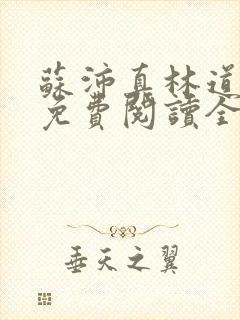 蘇沛真林道
免費閱讀全
垂天之翼